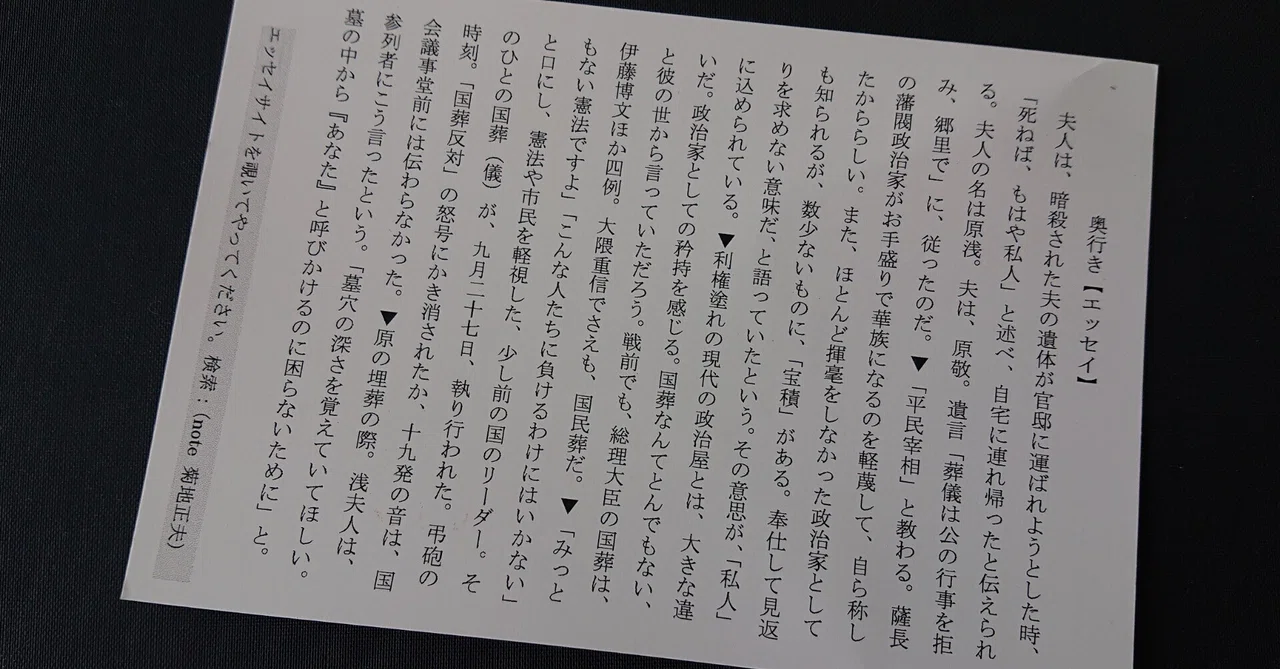 奥行き【エッセイ】
夫人は、暗殺された夫の遺体が官邸に運ばれようとした時、
「死ねば、もはや私人」と述べ、自宅に連れ帰ったと伝えられ
る。夫人の名は原浅。夫は、原敬。遺言「葬儀は公の行事を拒
み、郷里で」に、従ったのだ。▼「平民宰相」と教わる。薩長
の藩閥政治家がお手盛りで華族になるのを軽蔑して、自ら称し
たかららしい。また、ほとんど揮毫をしなかった政治家として
も知られるが、数少ないものに、「宝積」がある。奉仕して見返
りを求めない意味だ、と語っていたという。その意思が、「私人」
に込められている。▼利権塗れの現代の政治屋とは、大きな違
いだ。政治家としての矜持を感じる。国葬なんてとんでもない、
と彼の世から言っていただろう。戦前でも、総理大臣の国葬は、
伊藤博文ほか四例。大隈重信でさえも、国民葬だ。▼「みっと
もない憲法ですよ」「こんな人たちに負けるわけにはいかない」
と口にし、憲法や市民を軽視した、少し前の国のリーダー。そ
のひとの国葬（儀）が、九月二十七日、執り行われた。弔砲の
時刻。「国葬反対」の怒号にかき消されたか、十九発の音は、国
会議事堂前には伝わらなかった。▼原の埋葬の際。浅夫人は、
参列者にこう言ったという。「墓穴の深さを覚えていてほしい。
墓の中から『あなた』と呼びかけるのに困らないために」と。
エッセイサイトを覗いてやってください。検索：(note 菊地正夫)